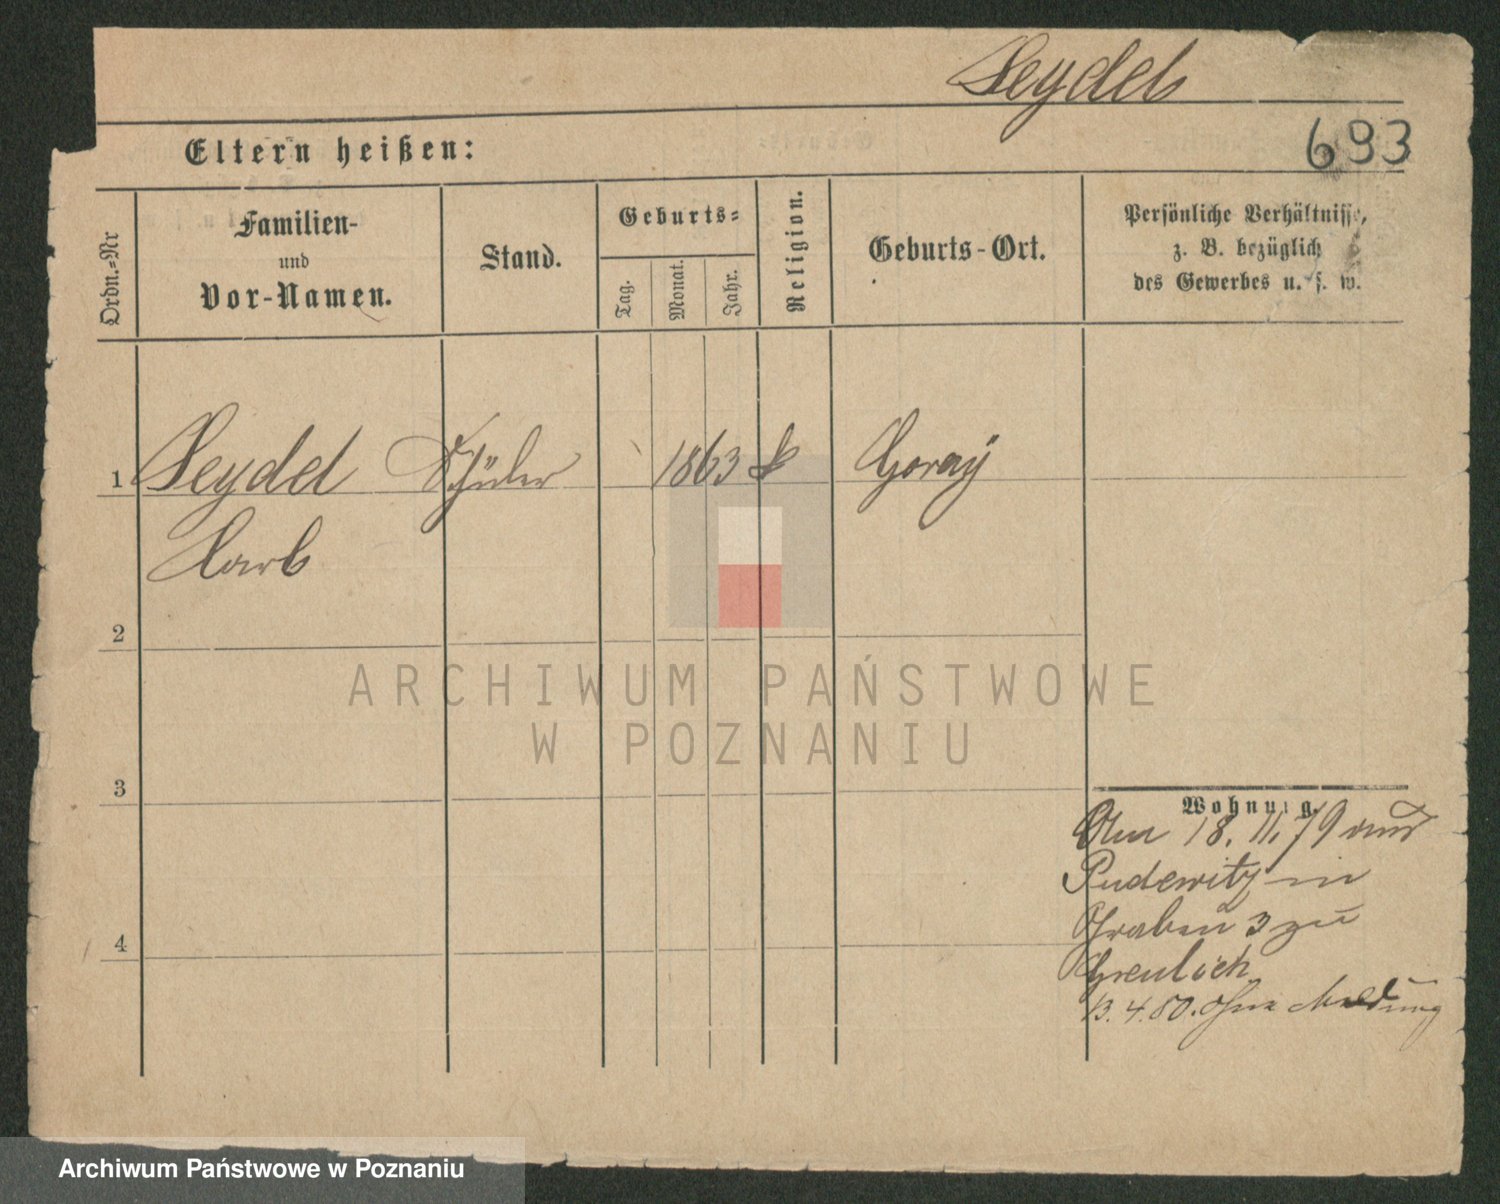 Seydel
693
Eltern heißen:
Ordn.=Nr
Familien-
und
Vor-Namen.
Stand.
Geburts=
Tag.
Monat.
Jahr.
Religion.
Geburts-Ort.
Persönliche Verhältnisse,
z. B. bezüglich
des Gewerbes u. s. w.
1 Seydel Schüler 1863 k Goray
Karl
2
3
4
Wohnung.
Am 18. 11. 79 aus
Pudewitz in
Graben 3 zu
Greulich
13. 4. 80. Ohne Meldung
ARCHIWUM PAŃSTWOWE
W POZNANIU
Archiwum Państwowe w Poznaniu